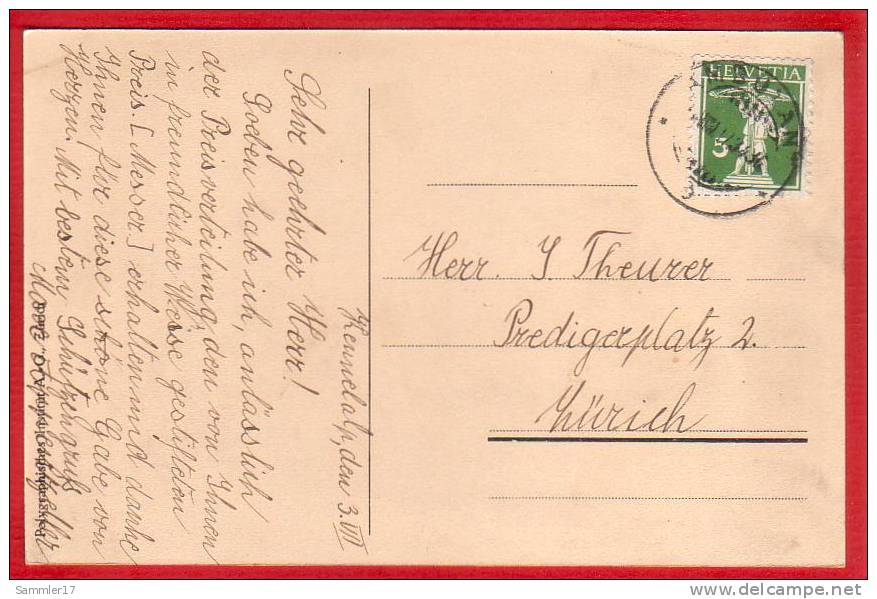 Kennelalp, den 3. VIII
Sehr geehrter Herr!
Soeben habe ich, anlässlich
der Preisverteilung, den von Ihnen
in freundlicher Weise gestifteten
Preis. [Messer] erhalten und danke
Ihnen für diese schöne Gabe von
Herzen. Mit bestem Schützengruß
Polygraphisches Institut A. G., Zürich
HELVETIA
5
Herr. J Theurer
Predigerplatz 2.
Zürich
Sammler17
delcampe.net